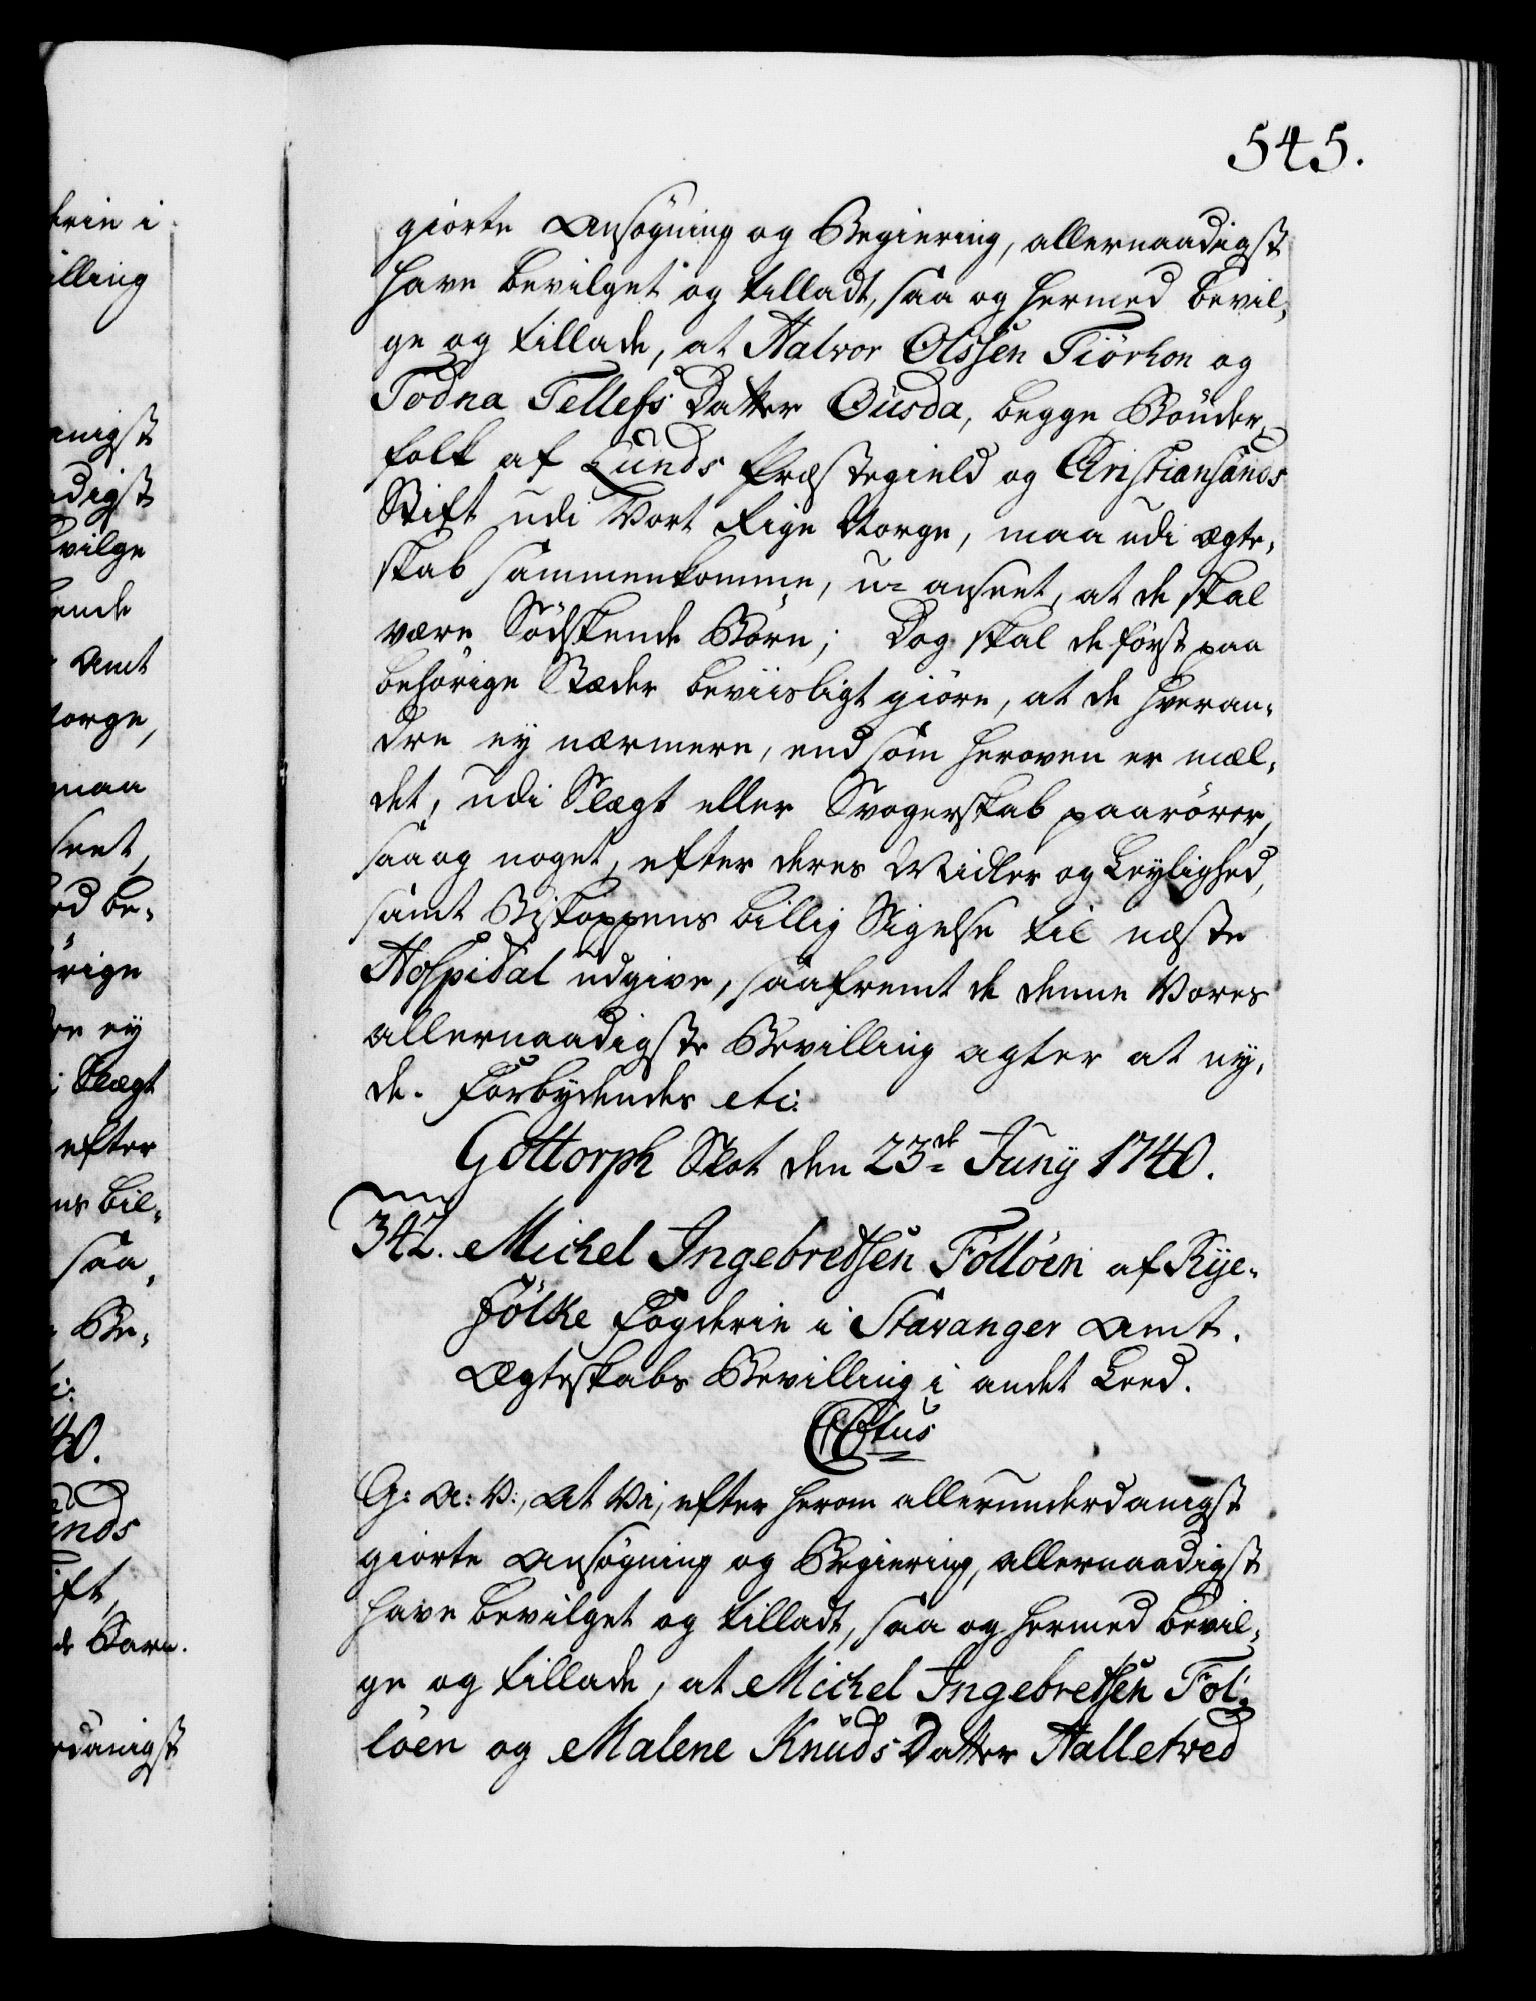 545.
giorte Ansøgning og Begiering, allernaadigst
have bevilget og tilladt, saa og hermed bevil-
ge og tillade, at Halvor Olssen Tiörhon og
Todna Tellefs Datter Ousda, begge Bönder-
folk af Lunds Præstegield og Christiansands
Stift udi Vort Rige Norge, maa udi Ægte-
skab sammenkomme, u-anseet, at de skal
være Södskende Börn; Dog skal de först paa
behörige Stæder beviisligt giöre, at de hveran-
dre ey nærmere, end som heroven er mæl-
det, udi Slægt eller Svogerskab paarörer,
saa og noget, efter deres Midler og Leylighed,
samt Biskoppens billig Sigelse til næste
Hospidal udgive, saafremt de denne Vores
allernaadigste Bevilling agter at ny-
de. Forbydendes etc:
Gottorph Slot den 23de Juny 1740.
342. Michel Ingebretsen Follöen af Rye-
fölke Fogderie i Stavanger Amt.
Ægteskabs Bevilling i andet Leed.
CStus
G: A: V:, At Vi, efter herom allerunderdanigst
giorte Ansøgning og Begiering, allernaadigst
have bevilget og tilladt, saa og hermed bevil-
ge og tillade, at Michel Ingebretsen Fol-
löen og Malene Knuds Datter Halletved